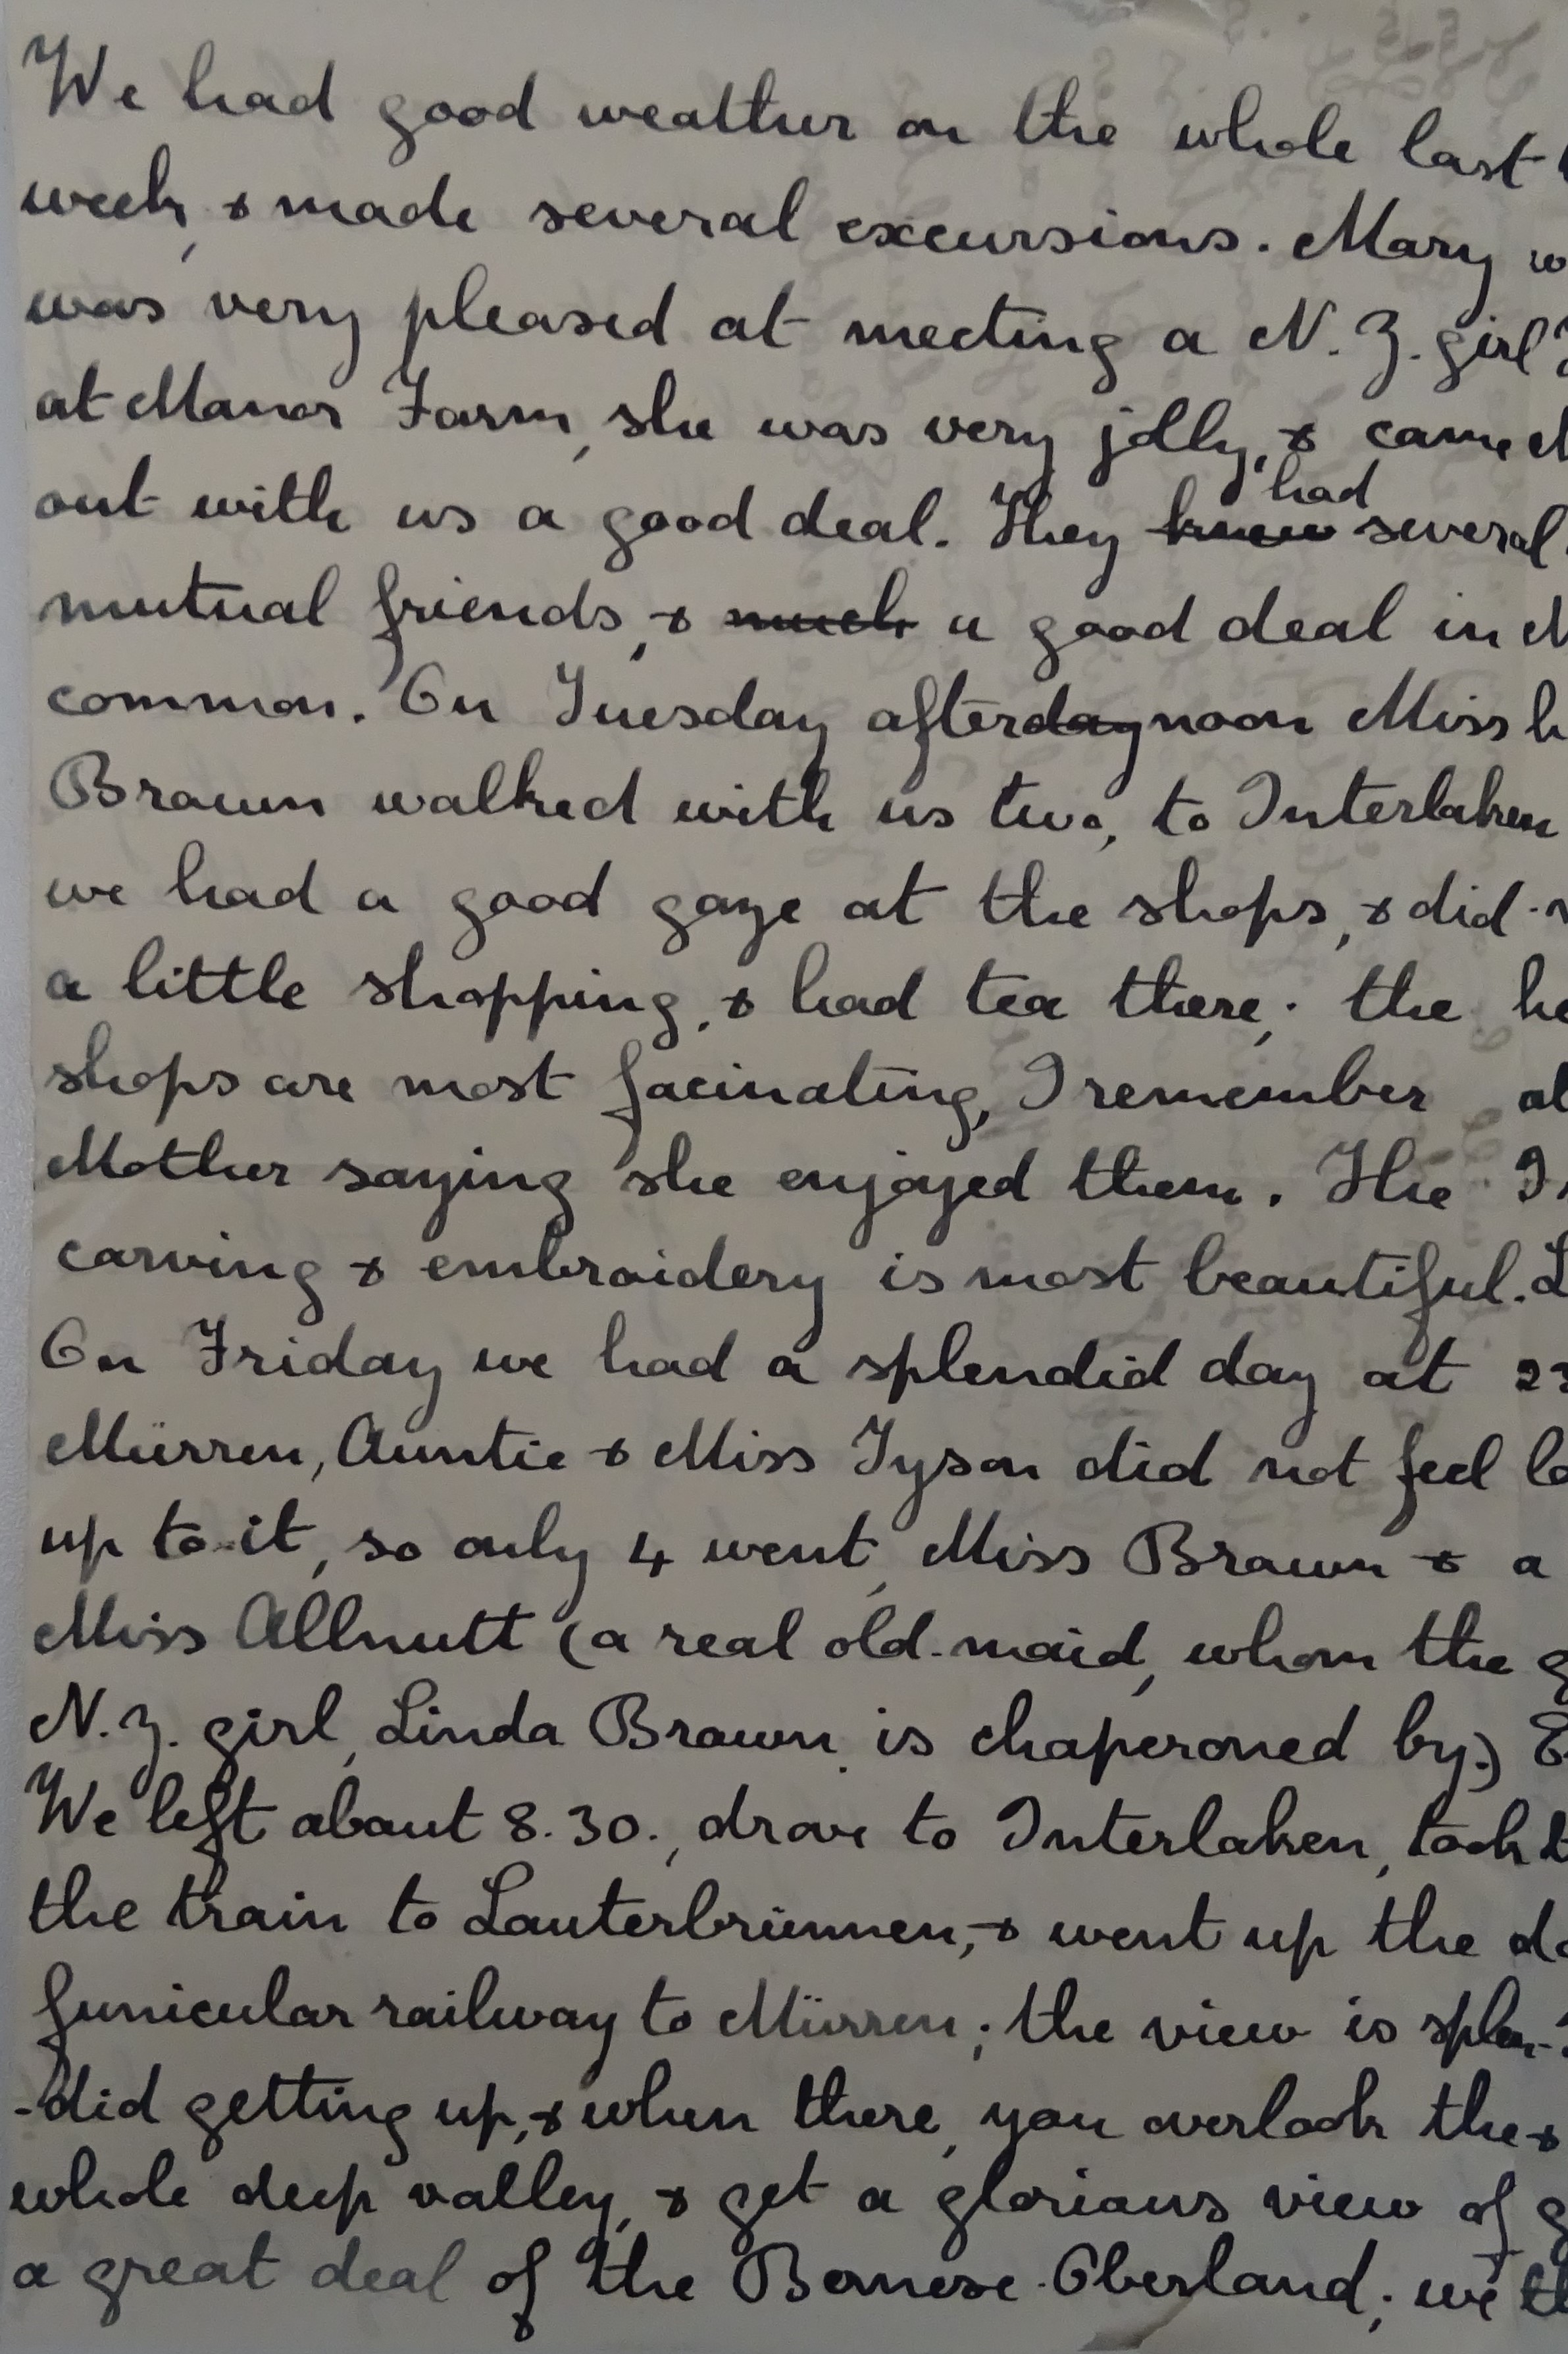 We had good weather on the whole last
week, & made several excursions. Mary
was very pleased at meeting a N. Z. girl
at Manor Farm, she was very jolly, & came
out with us a good deal. They ~~knew~~ had several
mutual friends, & ~~much~~ a good deal in
common. On Tuesday after~~day~~noon Miss
Brown walked with us two, to Interlaken
we had a good gaze at the shops, & did
a little shopping, & had tea there; the
shops are most facinating, I remember
Mother saying she enjoyed them. The
carving & embroidery is most beautiful.
On Friday we had a splendid day at
Mürren, Auntie & Miss Tyson did not feel
up to it, so only 4 went, Miss Brown & a
Miss Allnutt (a real old-maid, whom the
N.Z. girl, Linda Brown, is chaperoned by.)
We left about 8.30., drove to Interlaken, took
the train to Lauterbrünnen, & went up the
funicular railway to Mürren; the view is splen-
-did getting up, & when there, you overlook the
whole deep valley, & get a glorious view of
a great deal of the Bernese Oberland; we